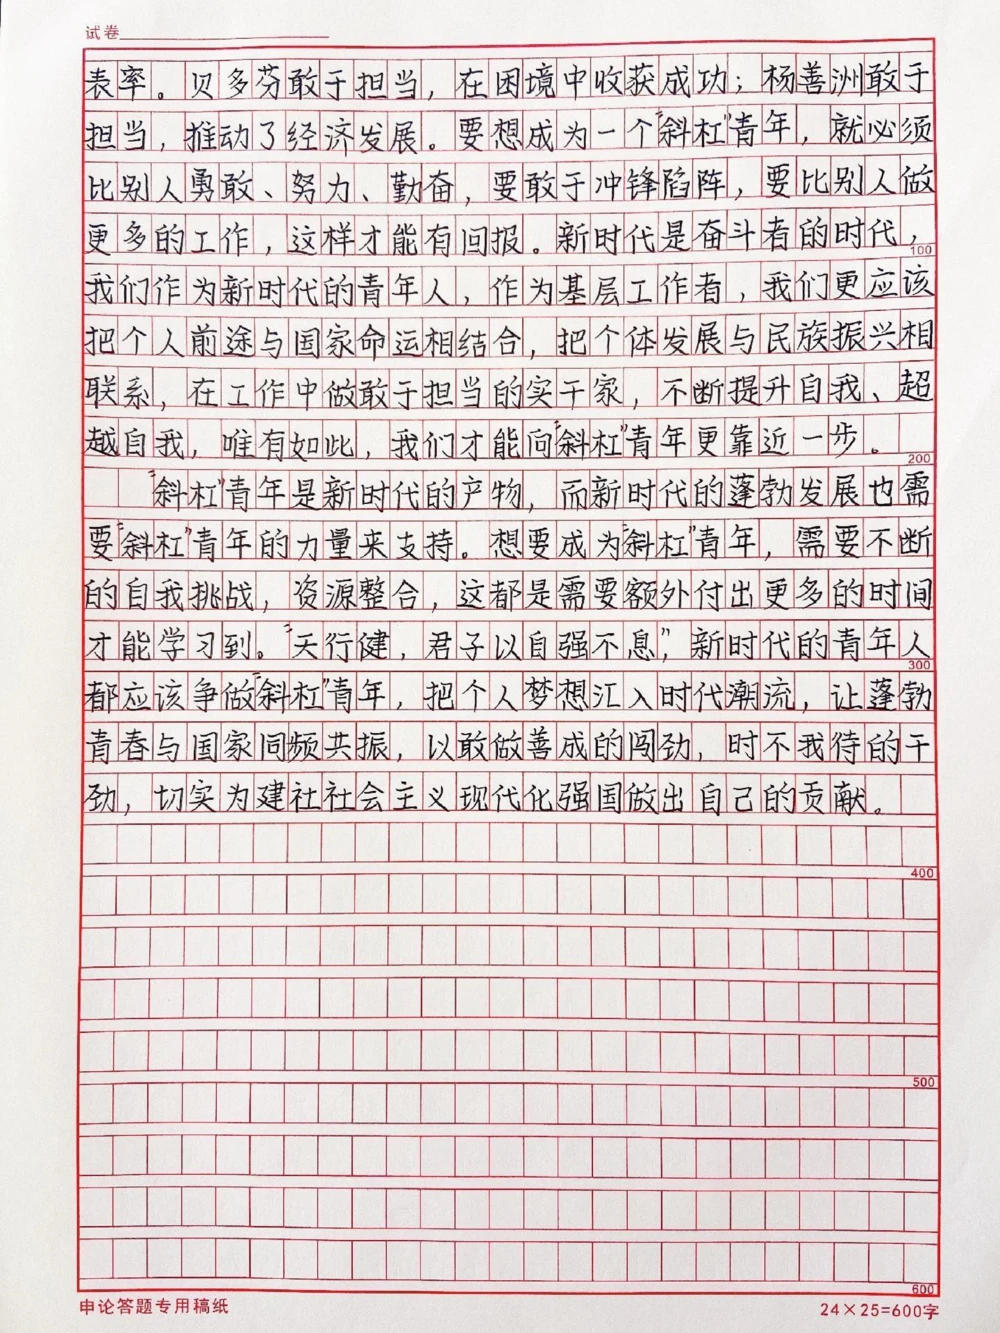 试卷
表率。贝多芬敢于担当，在困境中收获成功；杨善洲敢于
担当，推动了经济发展。要想成为一个“斜杠”青年，就必须
比别人勇敢、努力、勤奋，要敢于冲锋陷阵，要比别人做
更多的工作，这样才能有回报。新时代是奋斗者的时代，
100
我们作为新时代的青年人，作为基层工作者，我们更应该
把个人前途与国家命运相结合，把个体发展与民族振兴相
联系，在工作中做敢于担当的实干家，不断提升自我、超
越自我，唯有如此，我们才能向“斜杠”青年更靠近一步。
200
“斜杠”青年是新时代的产物，而新时代的蓬勃发展也需
要“斜杠”青年的力量来支持。想要成为“斜杠”青年，需要不断
的自我挑战，资源整合，这都是需要额外付出更多的时间
才能学习到。“天行健，君子以自强不息”，新时代的青年人
300
都应该争做“斜杠”青年，把个人梦想汇入时代潮流，让蓬勃
青春与国家同频共振，以敢做善成的闯劲，时不我待的干
劲，切实为建社社会主义现代化强国做出自己的贡献。
400
500
600
申论答题专用稿纸
24×25=600字